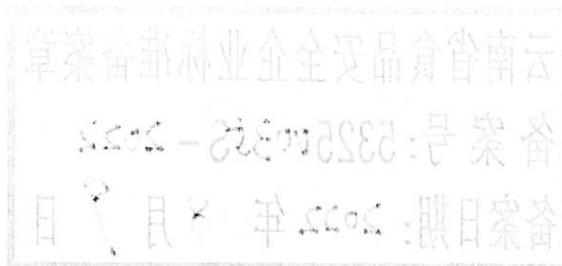 云南省食品安全企业标准备案章
备案号：53250035S-2022
备案日期：2022年8月9日